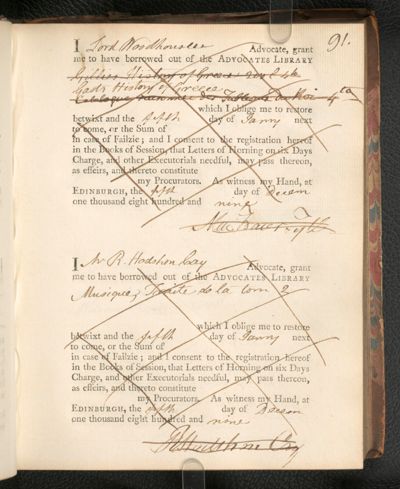 91.
I Lord Woodhouselee Advocate, grant
me to have borrowed out of the ADVOCATES LIBRARY
Gillies History of Greece 2 vols 4to
Gasts History of Greece
Catalogue raisonné des Tableaux du Roi 4to
which I oblige me to restore
betwixt and the fifth day of Janry next
to come, or the Sum of
in case of Failzie; and I consent to the registration hereof
in the Books of Session, that Letters of Horning on six Days
Charge, and other Executorials needful, may pass thereon,
as effeirs, and thereto constitute
my Procurators. As witness my Hand, at
EDINBURGH, the fifth day of Decem
one thousand eight hundred and nine
Tytler
I Mr R. Hodshon Cay Advocate, grant
me to have borrowed out of the ADVOCATES LIBRARY
Musique, Traite de la tom 2
which I oblige me to restore
betwixt and the fifth day of Janry next
to come, or the Sum of
in case of Failzie; and I consent to the registration hereof
in the Books of Session, that Letters of Horning on six Days
Charge, and other Executorials needful, may pass thereon,
as effeirs, and thereto constitute
my Procurators. As witness my Hand, at
EDINBURGH, the fifth day of Decem
one thousand eight hundred and nine
R Hodshon Cay